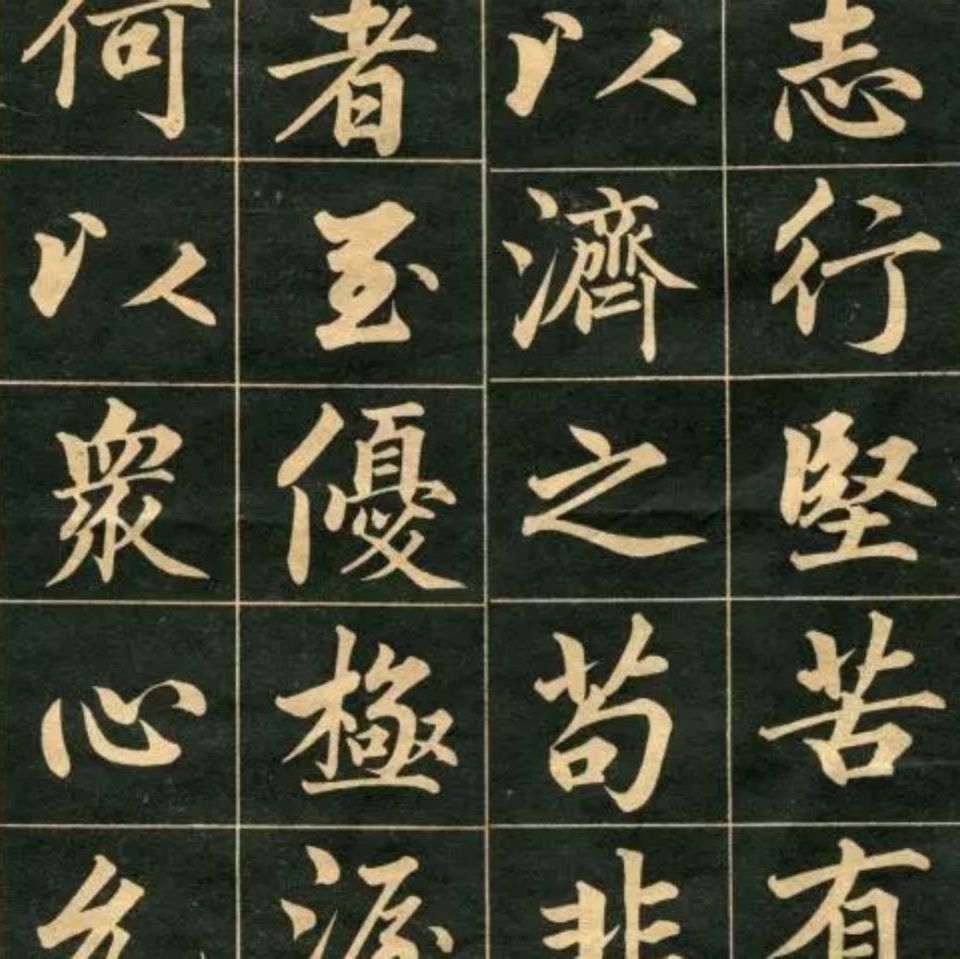 志行堅苦有
以濟之苟非
者至優極渥
何以衆心允